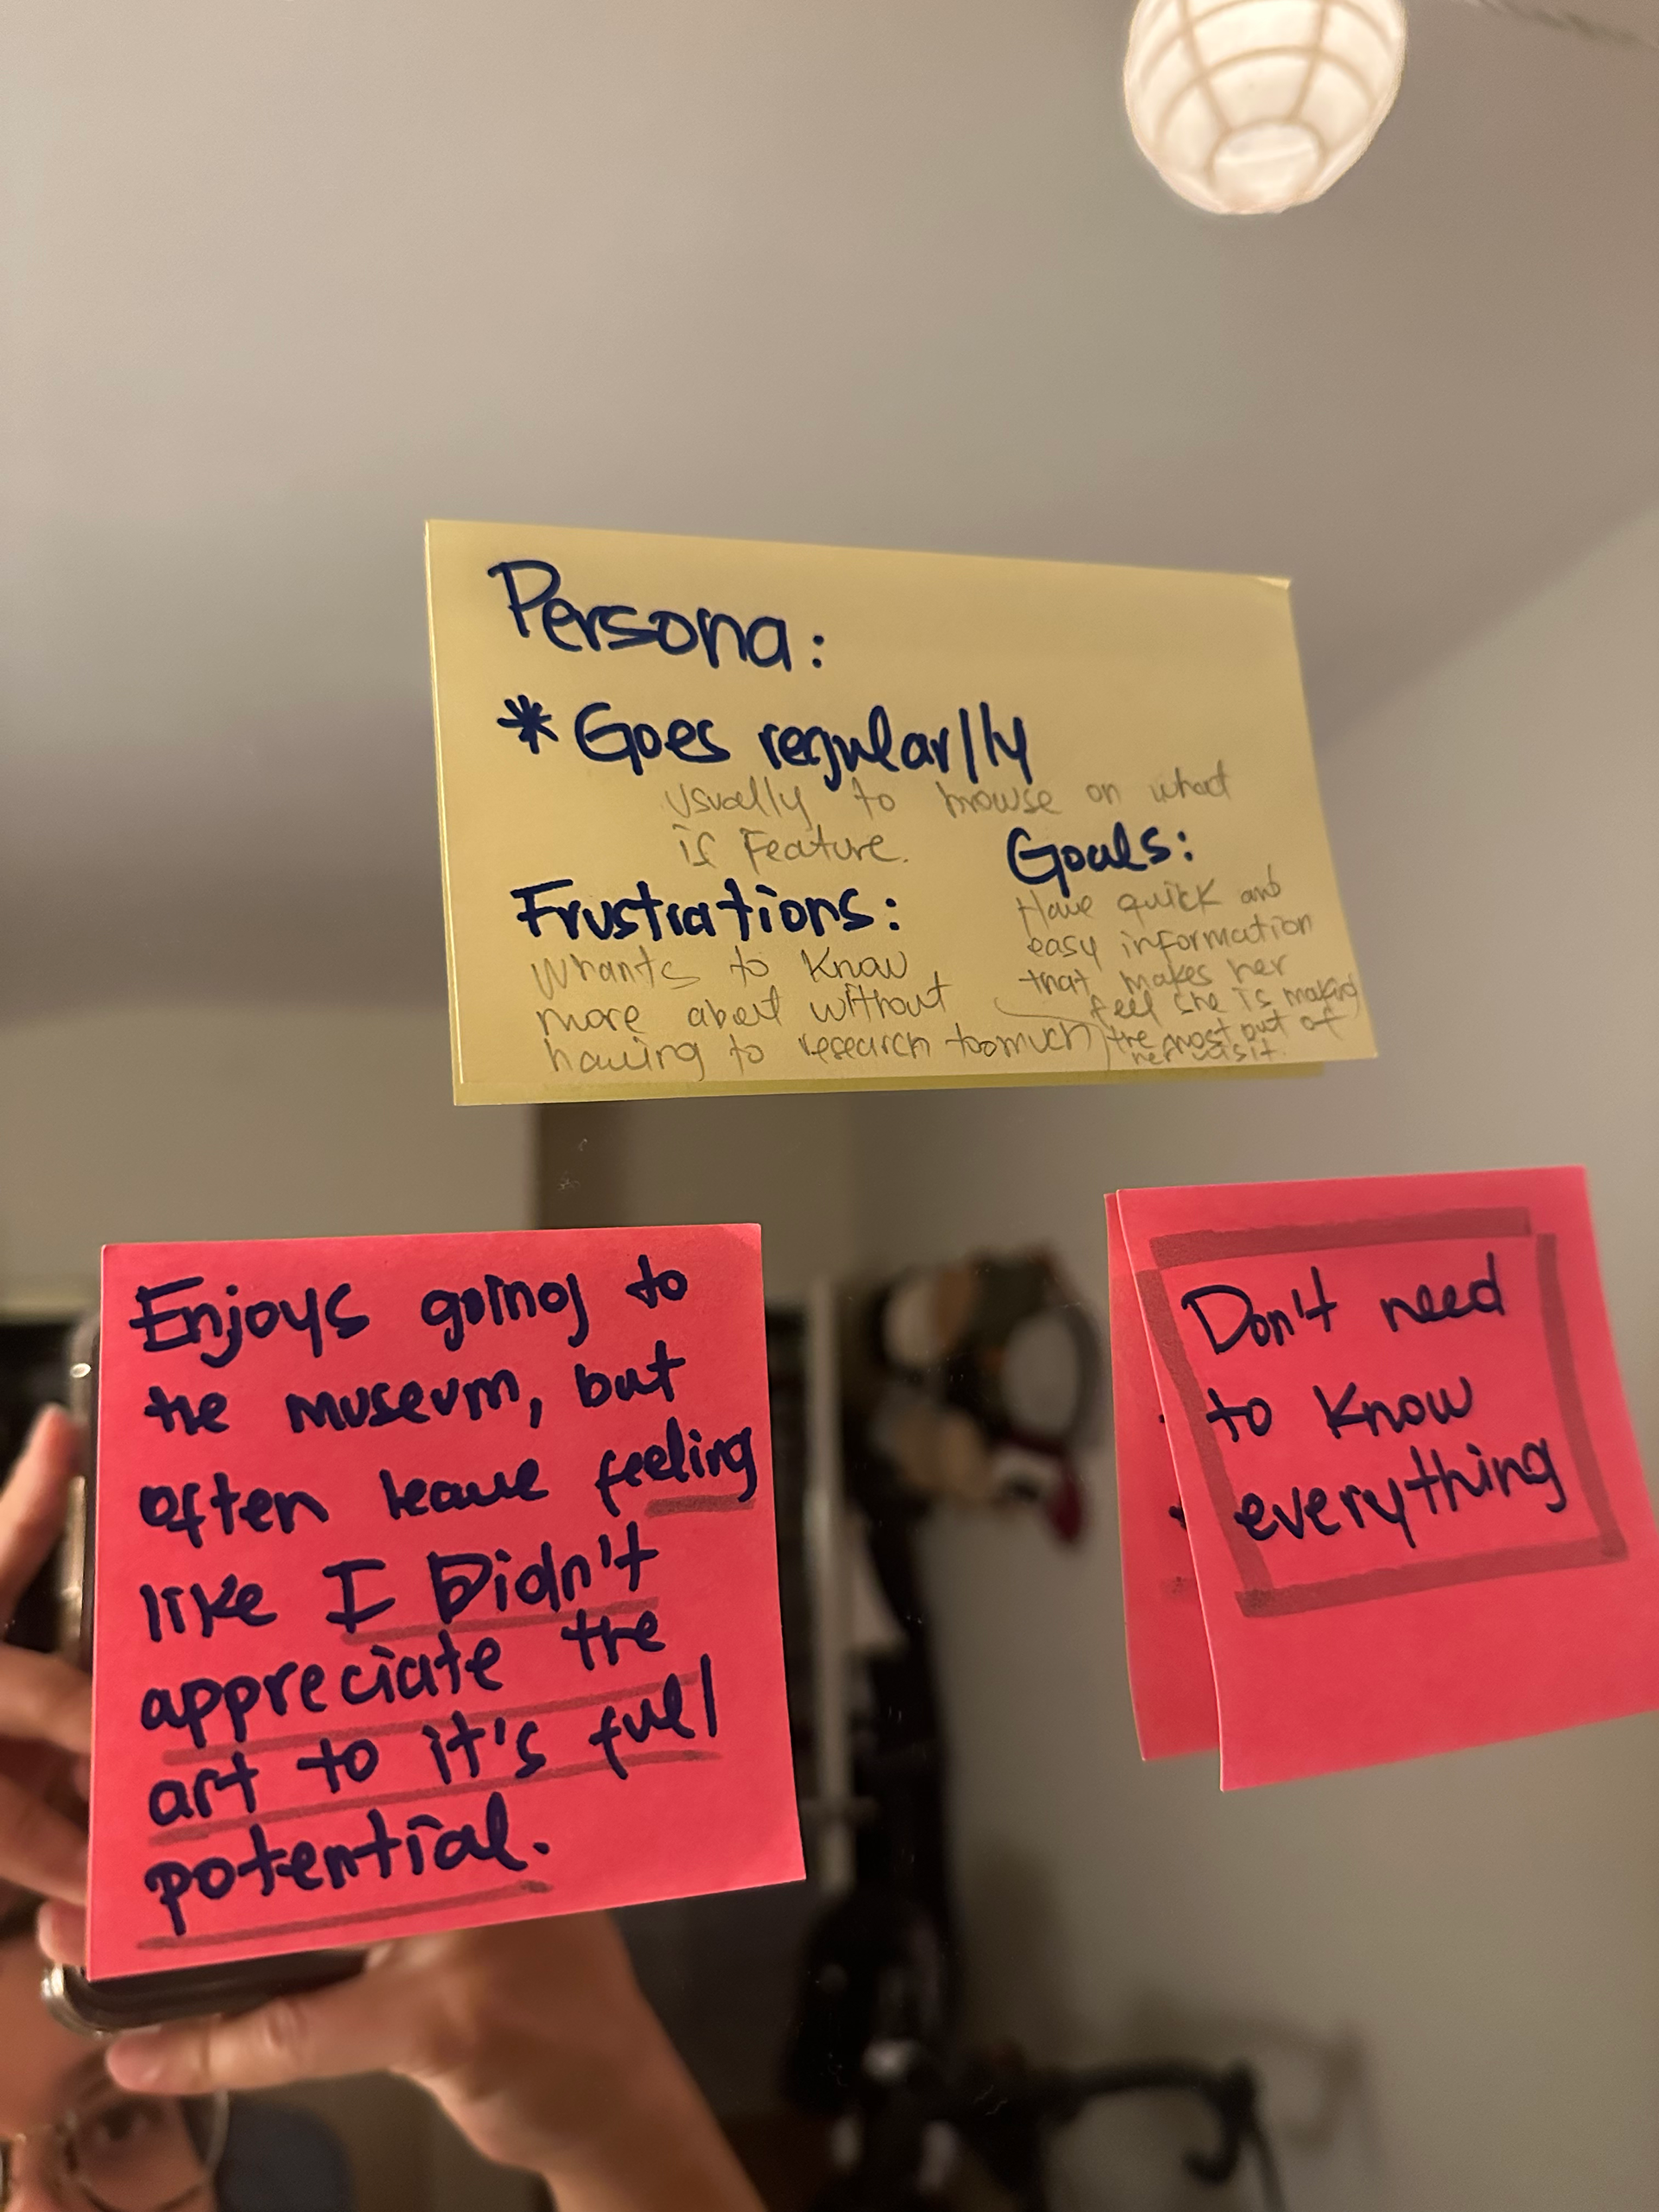 Persona:
* Goes regularlly
usually to browse on what
is Feature.
Frustrations:
Whants to know
more abent without
having to research toomuch
Goals:
Have quick and
easy information
that makes her
feel she is making
the most out of
her visit.
Enjoys going to
the museum, but
often leave feeling
like I Didn't
appreciate the
art to it's full
potential.
Don't need
to know
everything